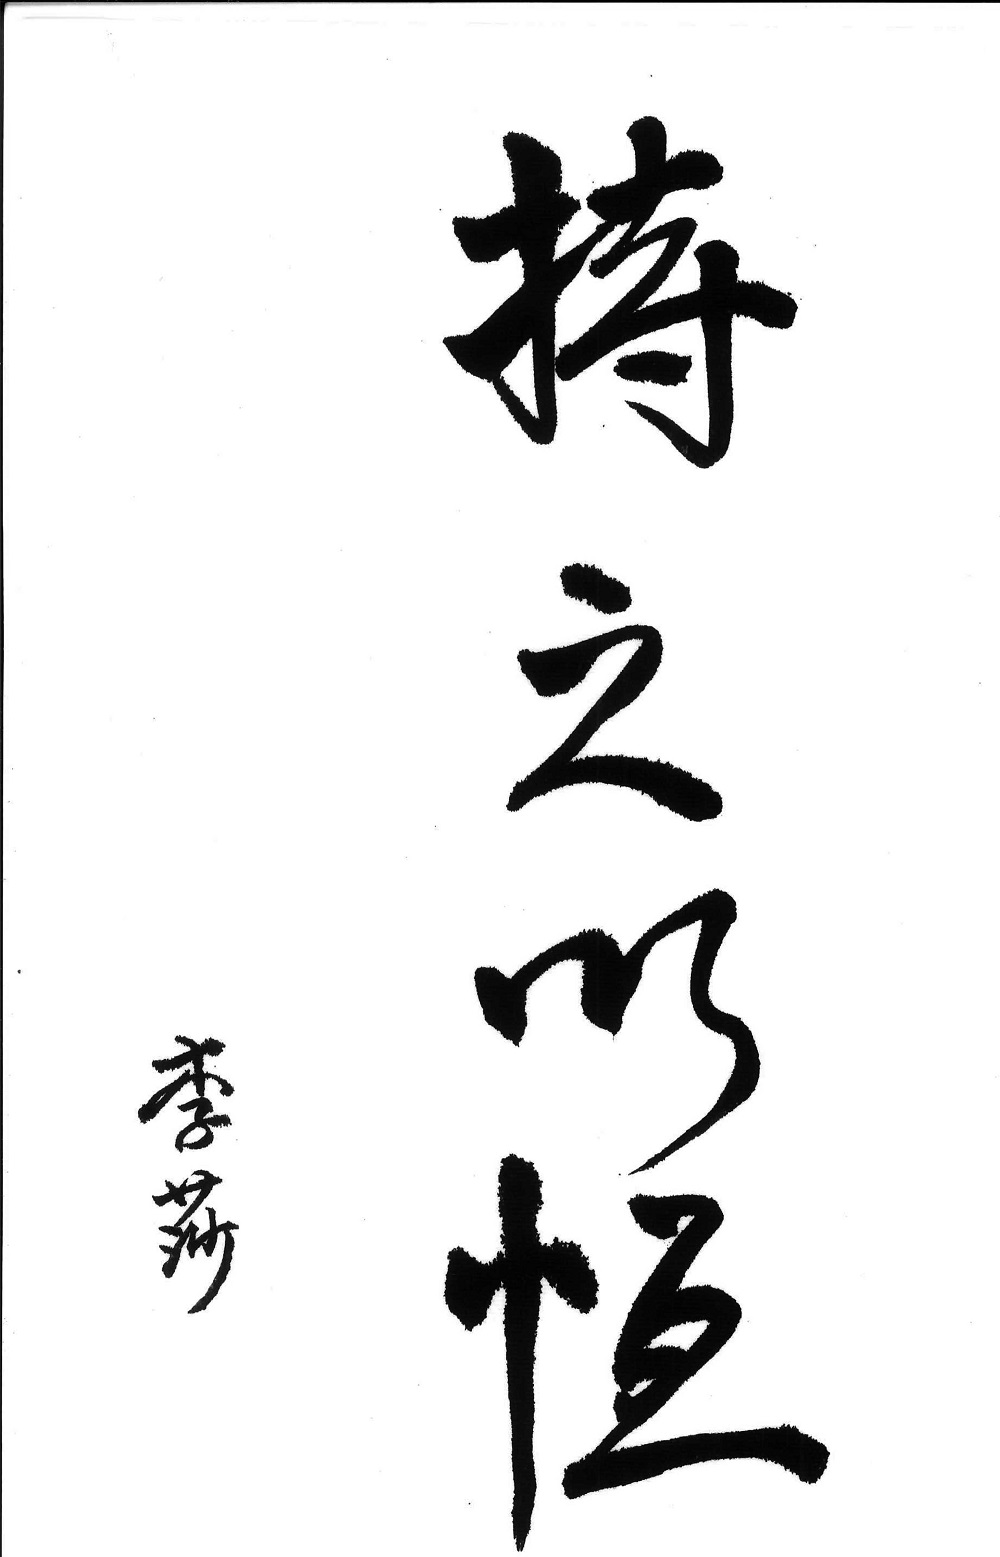 持之以恒
李莎